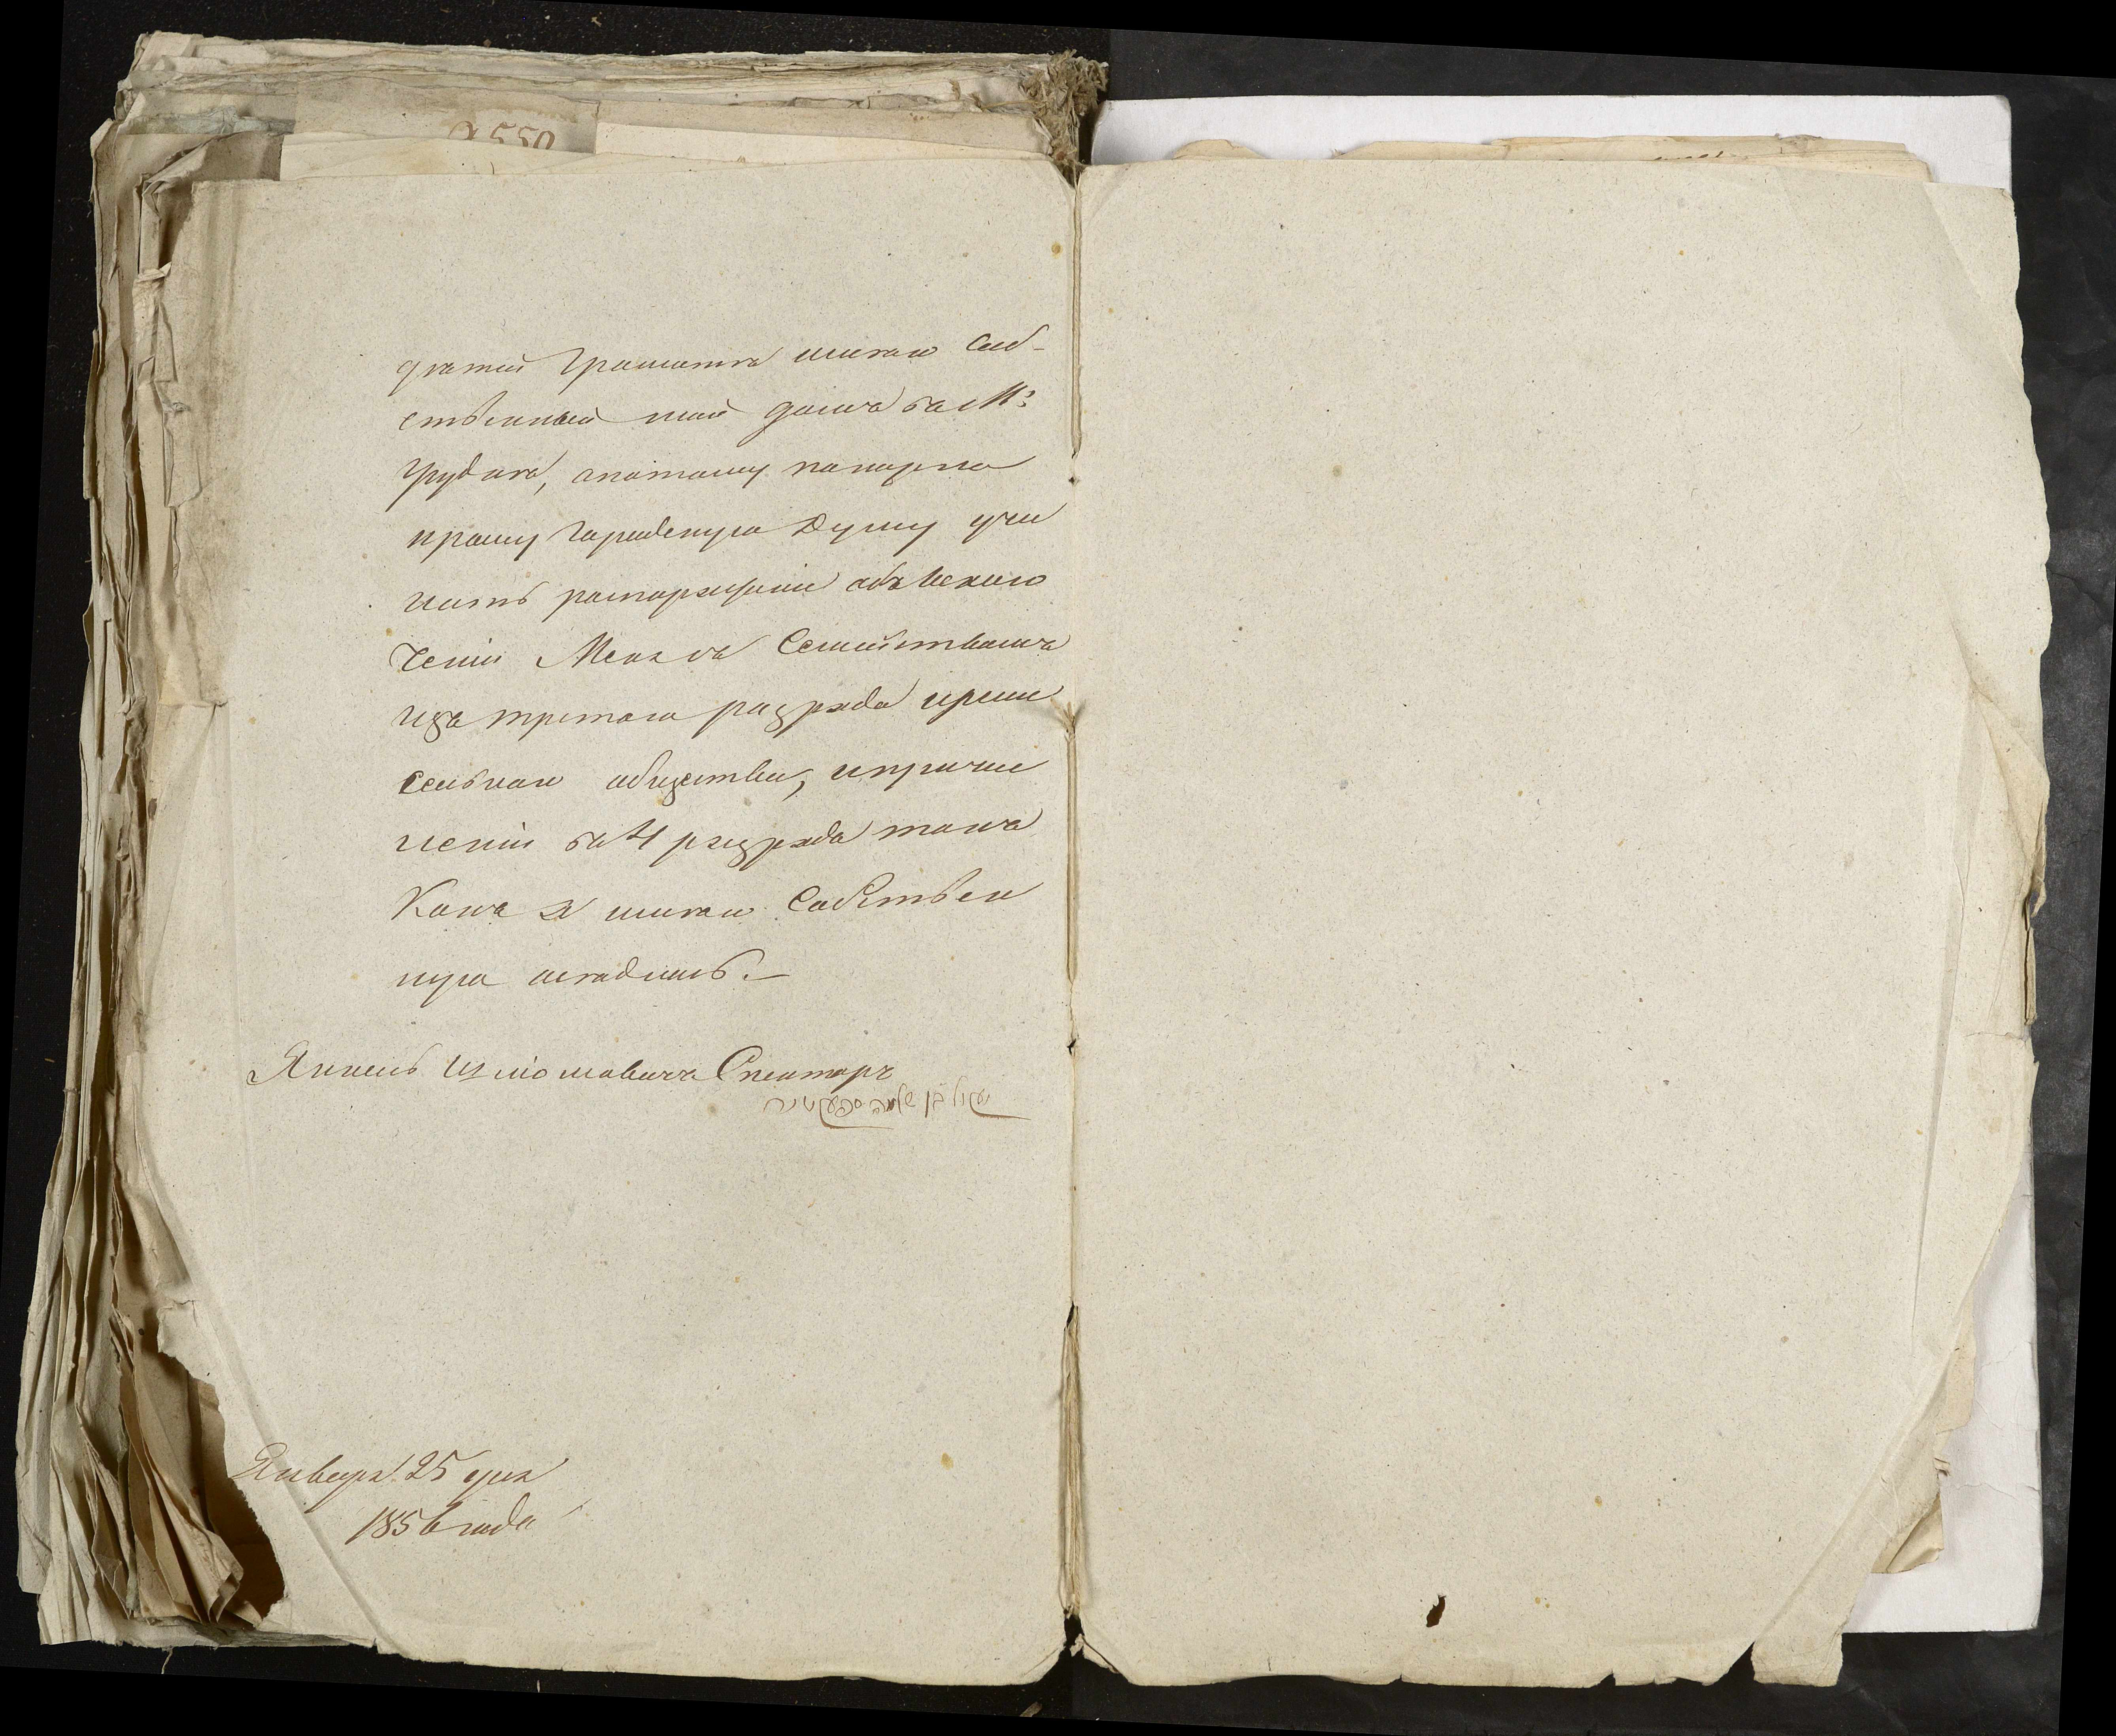 2550
дѣтей грамотѣ имѣю соб-
ственный мой домъ въ М:
, а потому покорно
прошу городскую Думу учи
нить распоряженіе объ исклю
ченіи Меня съ Семействомъ
изъ третаго разряда
общества, и причи
сленіи въ 4 разряда такъ
Какъ я имѣю собствен
ную осѣдлость.—
Янкель Шліомовичъ Спекторъ
יעקל בן שלמה ספעקטור
Января 25 дня
1856 года